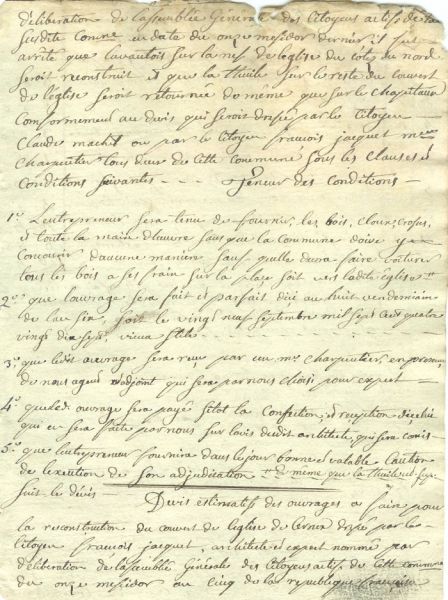 déliberation de lassemblée Générale des Citoyens actifs de la
susdite Comne en date du onze messidor dernier, il fut
arrêté que lavantois sur la nef de leglise du coté du nord
seroit reconstruit et que la thuile sur le reste du couvert
de leglise seroit retournée de même que sur le chapiteau
conformement au devis qui seroit dressé par le Citoyen
Claude machet ou par le Citoyen francois jacquet mtre
charpentier tous deux de cette commune sous les clauses et
Conditions suivantes — Teneur des Conditions —
1° Lentrepreneur sera tenu de fournir les bois, cloux,
et toute la main d'œuvre sans que la Commune doive y
Concourir daucune maniere sauf quelle devra faire voiturer
tous les bois a ses frais sur la place soit vers ladite église
2° que louvrage sera fait et parfait dici au huit vendemiaire
de lan six soit le vingt neuf septembre mil sept cent quatre
vingt dix sept, vieux stile
3° que ledit ouvrage sera reçu par un mtre charpentier, en presence
de nous agent et adjoint qui sera par nous choisi pour expert —
4° que led. ouvrage sera payé sitot la Confection, et reception dicelui
qui en sera faite par nous sur lavis dudit architecte, qui sera
5° que lentrepreneur fournira dans le jour bonne et valable Caution
de lexecution de son adjudication de même que la thuile
suit le devis —
Devis estimatif des ouvrages a faire pour
la reconstruction du couvert de leglise de Cernex dressé par le
Citoyen francois jacquet, architecte et expert nommé par
déliberation de lassemblée Générale des Citoyens actifs de cette commune
du onze messidor an cinq de la republique française